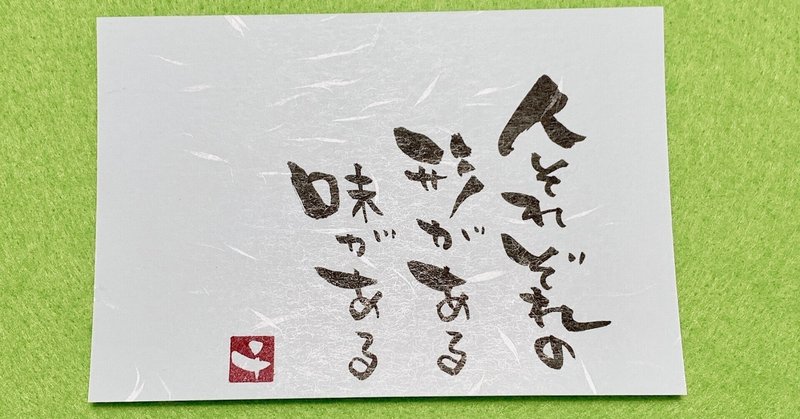 人それぞれの
形がある
味がある